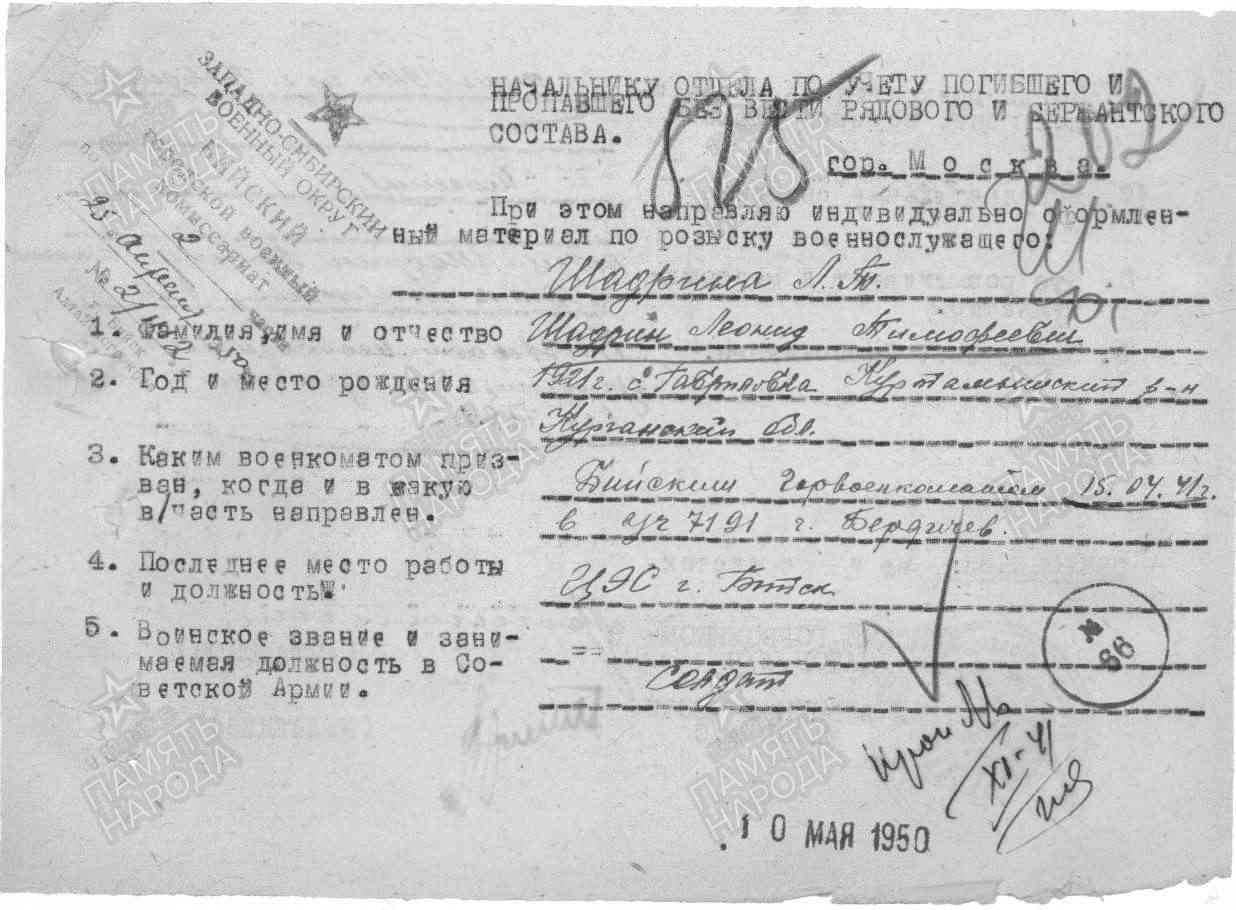 ЗАПАДНО-СИБИРСКИЙ
ВОЕННЫЙ ОКРУГ
БИЙСКИЙ
городской военный
комиссариат
2 часть
25. апреля
№ 2/
НАЧАЛЬНИКУ ОТДЕЛА ПО УЧЕТУ ПОГИБШЕГО И
ПРОПАВШЕГО БЕЗ ВЕСТИ РЯДОВОГО И СЕРЖАНТСКОГО
СОСТАВА.
525
202
гор. М о с к в а.
При этом направляю индивидуально оформлен-
ный материал по розыску военнослужащего:
Шадрина Л.Т.
1. Фамилия, имя и отчество Шадрин Леонид Тимофеевич
2. Год и место рождения 1921г. с. Гавриловка Куртамышский р-н
Курганской обл.
3. Каким военкоматом приз-
ван, когда и в какую
в/часть направлен.
Бийским Горвоенкоматом 15.04.41г.
в 7191 г. Бердичев.
4. Последнее место работы
и должность
ЦЭС г. Бийск
5. Воинское звание и зани-
маемая должность в Со-
ветской Армии.
==
Солдат
№
66
XI-41
10 МАЯ 1950
ПАМЯТЬ
НАРОДА
ПАМЯТЬ
НАРОДА
ПАМЯТЬ
НАРОДА
ПАМЯТЬ
НАРОДА
ПАМЯТЬ
НАРОДА
ПАМЯТЬ
НАРОДА